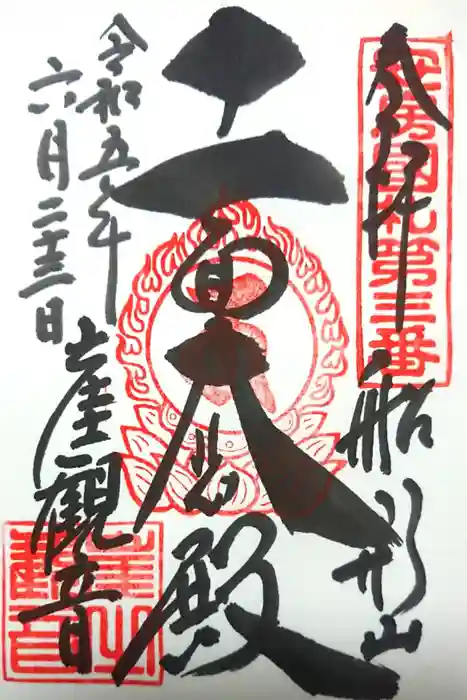 奉拝
船形山
安房國札第三番
十一面大悲殿
令和五年
六月二十三日
崖観音
崖観音